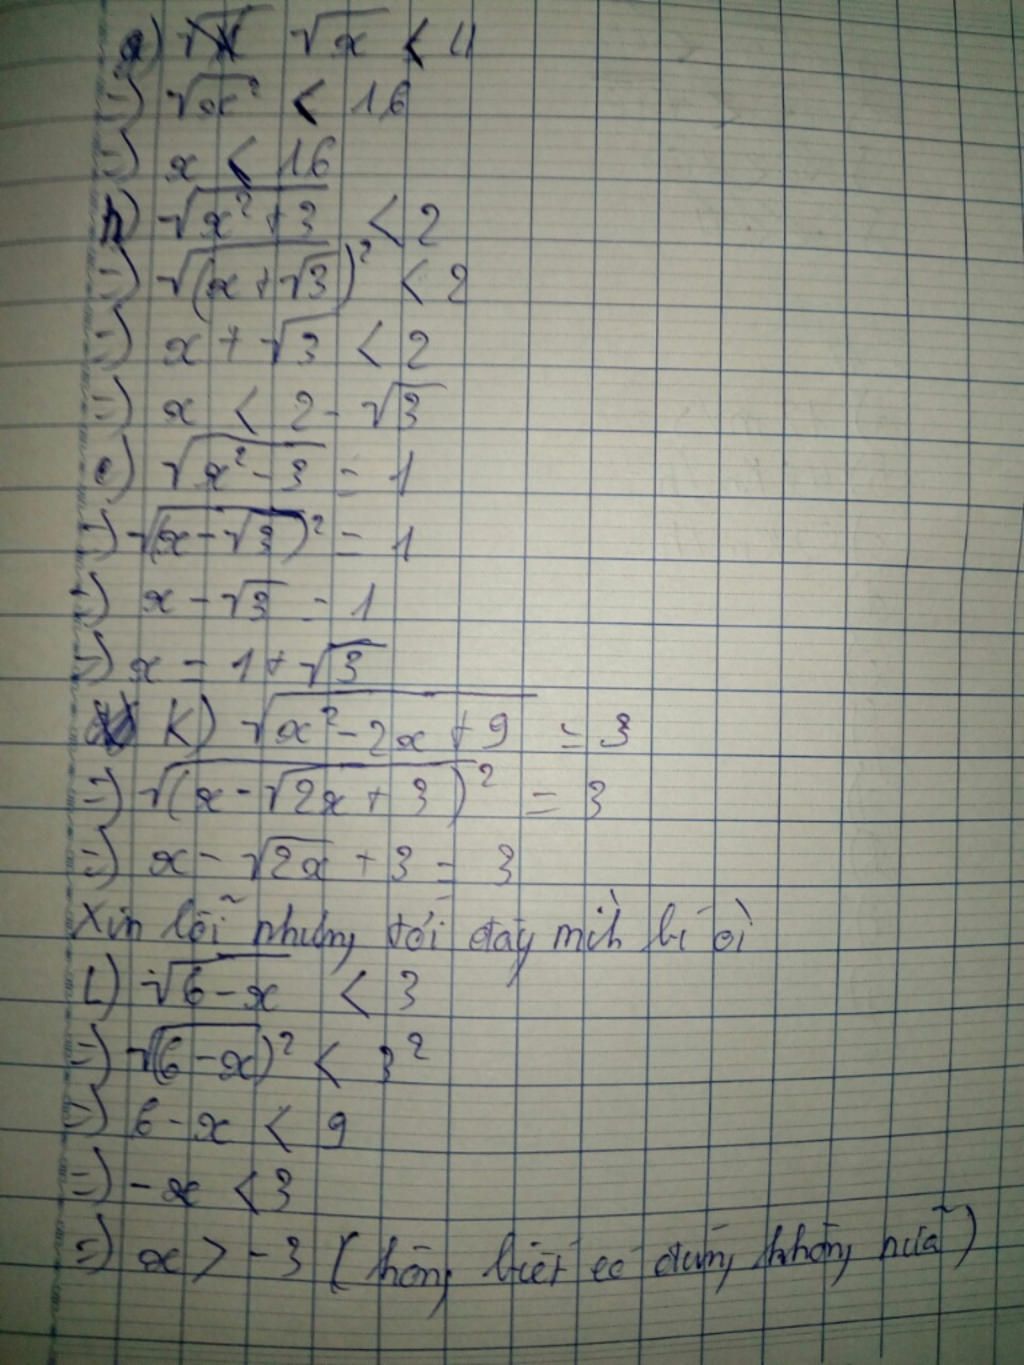 a) √x < 4
=) √x² < 16
=) x < 16
h) √x²+3 < 2
=) √(x+√3)² < 2
=) x + √3 < 2
=) x < 2 - √3
c) √x²-3 = 1
=) √(x-√3)² = 1
=) x - √3 = 1
=) x = 1 + √3
K) √x²-2x+9 = 3
=) √(x-√2x+3)² = 3
=) x - √2x + 3 = 3
Xin lỗi nhưng tới đây mih bí òi
L) √6-x < 3
=) √(6-x)² < 3²
=) 6 - x < 9
=) -x < 3
=) x > -3 ( hông biết có đúng không nữa )